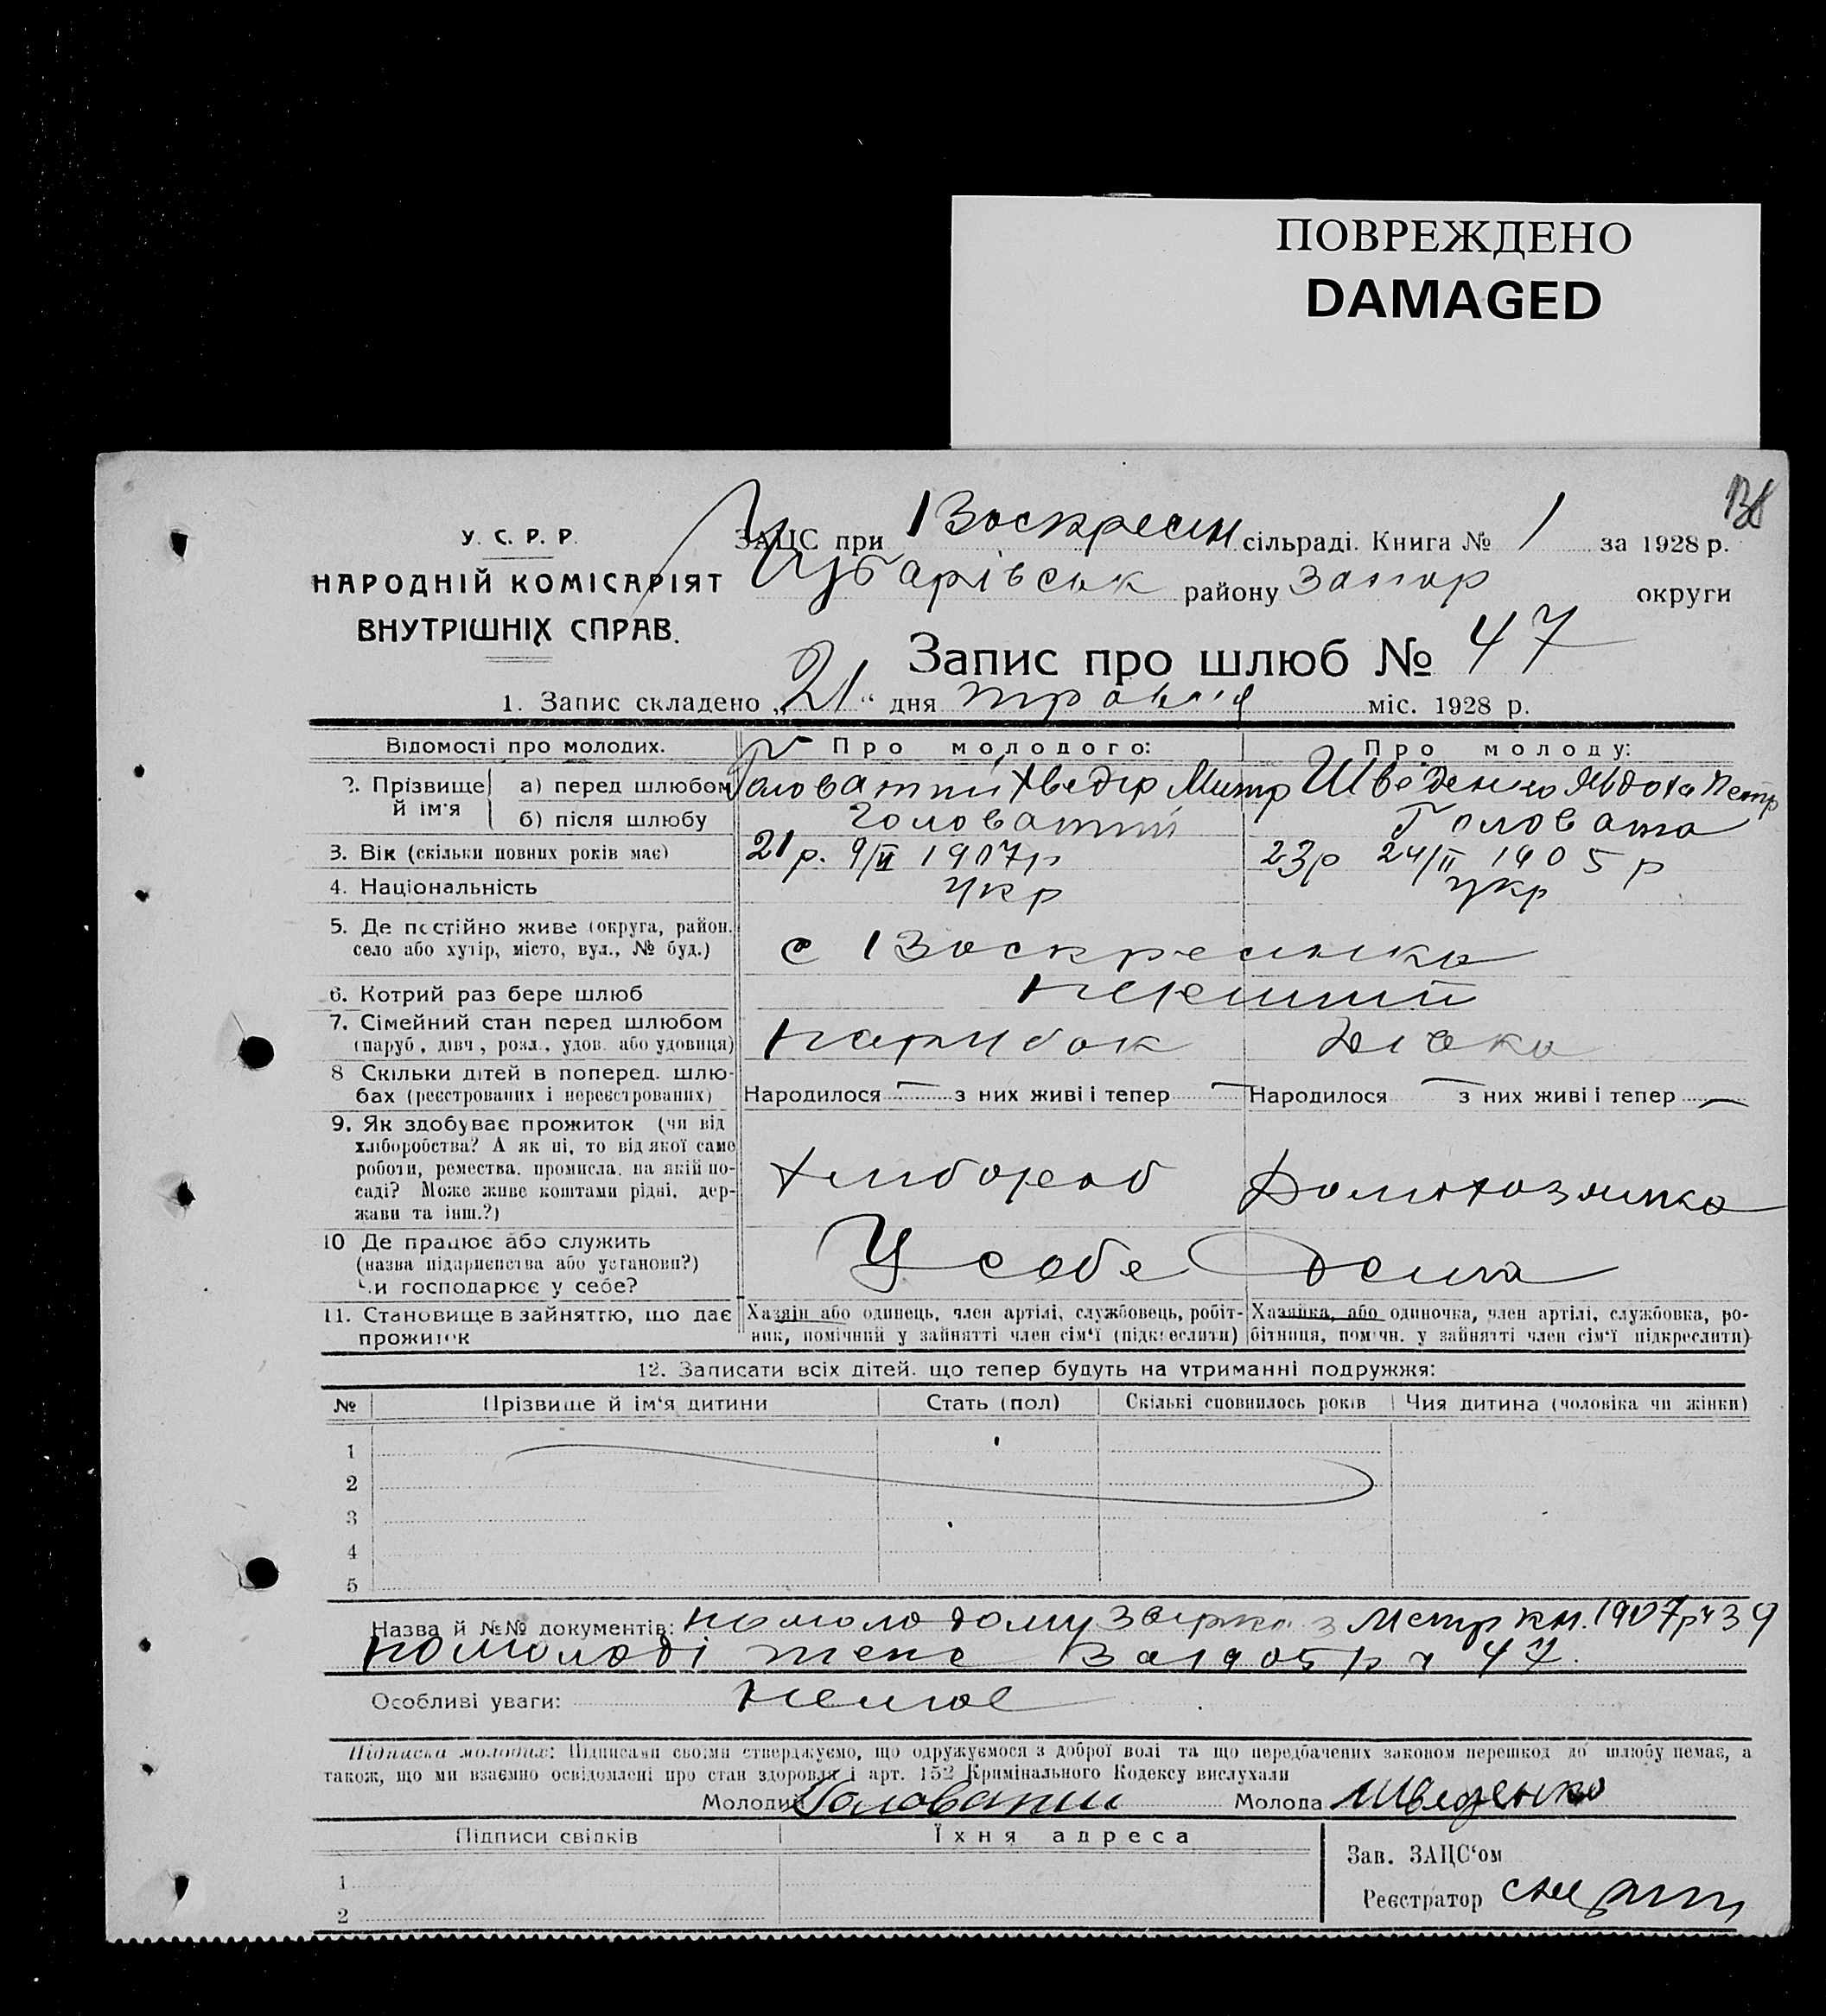 ПОВРЕЖДЕНО
DAMAGED
138
У. С. Р. Р.
НАРОДНІЙ КОМІСАРІЯТ
ВНУТРІШНІХ СПРАВ.
ЗАЦС при 1 Воскресен сільраді. Книга № 1 за 1928 р.
Чубарівськ району Запор округи
Запис про шлюб № 47
1. Запис складено „21“ дня травня міс. 1928 р.
Відомості про молодих. Про молодого: Про молоду:
2. Прізвище й ім'я а) перед шлюбом Головатий Хведір Митр Шведенко Явдоха Петр
б) після шлюбу Головатий Головата
3. Вік (скільки повних років має) 21 р. 9/II 1907 р 23 р 24/II 1905 р
4. Національність укр укр
5. Де постійно живе (округа, район,
село або хутір, місто, вул., № буд.) с 1 Воскресенка
6. Котрий раз бере шлюб перший
7. Сімейний стан перед шлюбом
(паруб., дівч., розл., удов. або удовиця) парубок дівка
8 Скільки дітей в поперед. шлю-
бах (реєстрованих і нереєстрованих) Народилося — з них живі і тепер — Народилося — з них живі і тепер —
9. Як здобуває прожиток (чи від
хліборобства? А як ні, то від якої саме
роботи, ремества, промисла, на якій по-
саді? Може живе коштами рідні, дер-
жави та інш.?) хлибороб Домохозяйка
10 Де працює або служить
(назва підприємства або установи?)
Чи господарює у себе? У себе дома
11. Становище в зайняттю, що дає
прожиток
Хазяїн або одинець, член артілі, службовець, робіт-
ник, помічний у зайнятті член сім'ї (підкреслити)
Хазяйка, або одиночка, член артілі, службовка, ро-
бітниця, помічн. у зайнятті член сім'ї підкреслити)
12. Записати всіх дітей, що тепер будуть на утриманні подружжя:
№ Прізвище й ім'я дитини Стать (пол) Скількі сповнилось років Чия дитина (чоловіка чи жінки)
1
2
3
4
5
Назва й №№ документів: по молодому звірка з Метр кн. 1907 р ч 39
по молоді теже За 1905 р ч 47.
Особливі уваги: немає
Підписка молодих: Підписами своїми стверджуємо, що одружуємося з доброї волі та що передбачених законом перешкод до шлюбу немає, а
також, що ми взаємно освідомлені про стан здоровля і арт. 152 Кримінального Кодексу вислухали
Молодий Головатий Молода Шведенко
Підписи свідків Їхня адреса
Зав. ЗАЦС'ом
1
Реєстратор
2